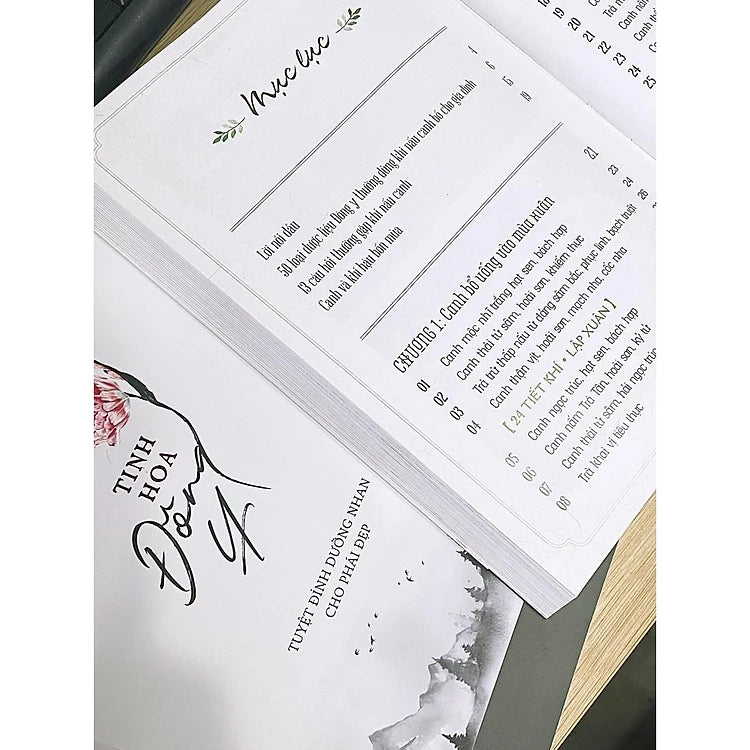 Mục lục
Lời nói đầu 1
50 loại dược liệu Đông y thường dùng khi nấu canh bổ cho gia đình 6
13 câu hỏi thường gặp khi nấu canh 15
Canh và khí hậu bốn mùa 19
CHƯƠNG 1: Canh bổ uống vào mùa xuân 21
01 Canh mộc nhĩ trắng, hạt sen, bách hợp 23
02 Canh thái tử sâm, hoài sơn, khiếm thực 24
03 Trà trừ thấp nấu từ đảng sâm bắc, phục linh, bạch truật 26
04 Canh thận vịt, hoài sơn, mạch nha, cốc nha
[ 24 TIẾT KHÍ • LẬP XUÂN ]
05 Canh ngọc trúc, hạt sen, bách hợp
06 Canh nấm Trà Tân, hoài sơn, kỷ tử
07 Canh thái tử sâm, hải ngọc trúc
08 Trà khai vị tiêu thực
18
19
20
21
22
23
24
25
TINH HOA
Đông Y
TUYỆT ĐỈNH DƯỠNG NHAN
CHO PHÁI ĐẸP